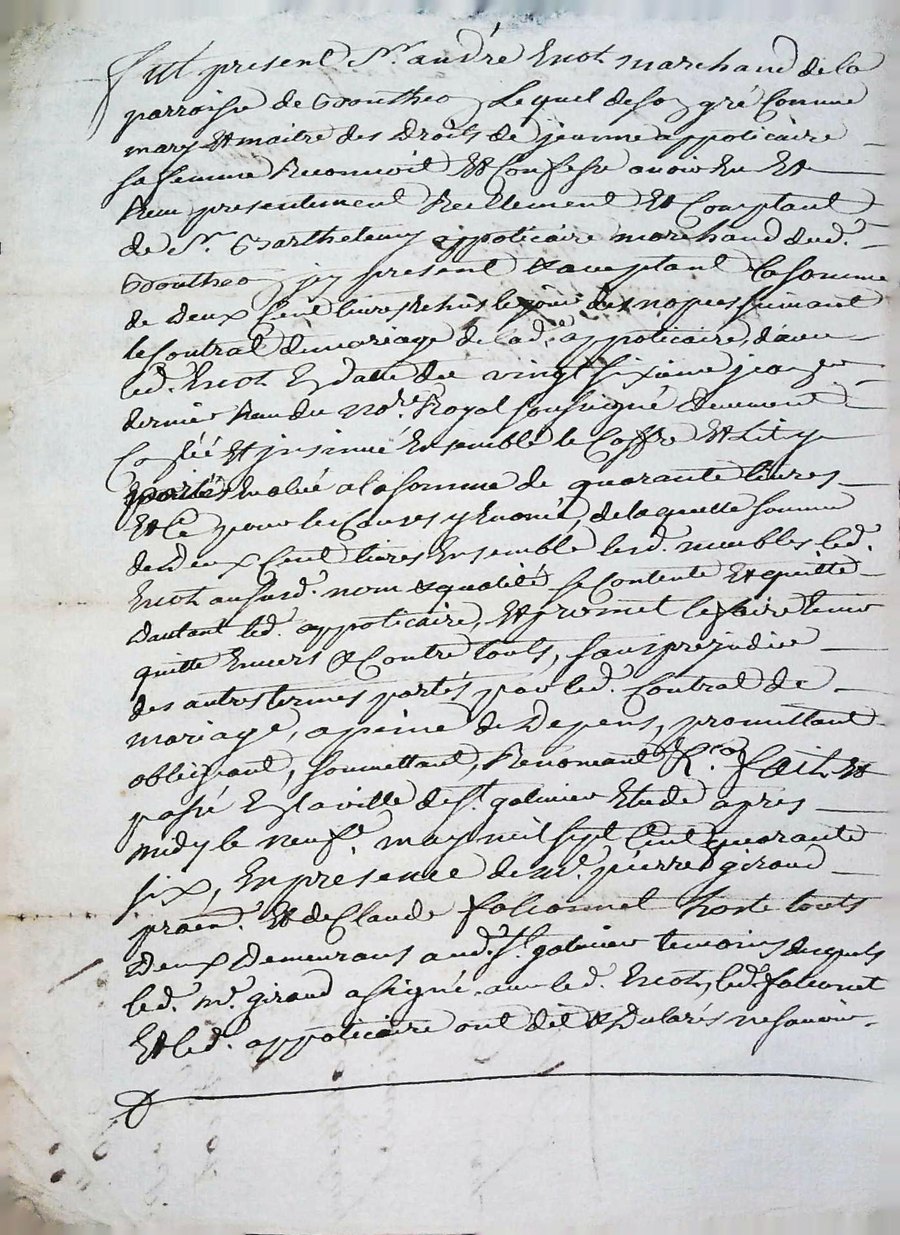 fut present Sr. andré Enot marchand de la
parroisse de Boutheo, Lequel de son gré Comme
mary Et maitre des Droits de jeanne appoticaire
sa femme Reconnoit Et Confesse avoir Eu Et
Receu presentement Reellement Et Comptant
de Sr. Barthelemy appoticaire marchand dud.
Boutheo jcy present & acceptant La somme
de Deux Cent livres le jour des nopces suivant
le Contrat de mariage de lad. appoticaire, d'avec
led. Enot En datte du vingt sixieme janver
dernier Receu du nore. Royal soussigné duement
Collé Et jnsinué Ensemble le Coffre Et Lit y
portés Evalué a la somme de quarante livres
Et Ce pour les Causes y Enoncé, de laquelle somme
de Deux Cent livres Ensemble lesd. meubles led.
Enot aususd. nom & qualité se Contente Et quitte
Dautant led. appoticaire, Et promet le faire tenir
quitte Envers & Contre touts, sans prejudice
des autres termes portés par led. Contrat de
mariage, a peine de Depens, promettant
obligeant, soumettant, Renoncant & Ca. fait &
passé En la ville de St. galmier Etude apres
midy le neufe. may mil sept Cent quarante
six, En presence de Me. pierre giraud
praend. Et de Claude falconnet hoste touts
Deux Demeurans aud. St. galmier temoins desquels
led. Me. giraud a signé avec led. Enot, led. falconet
Et led. appoticaire ont dit & Declarés ne scavoir.